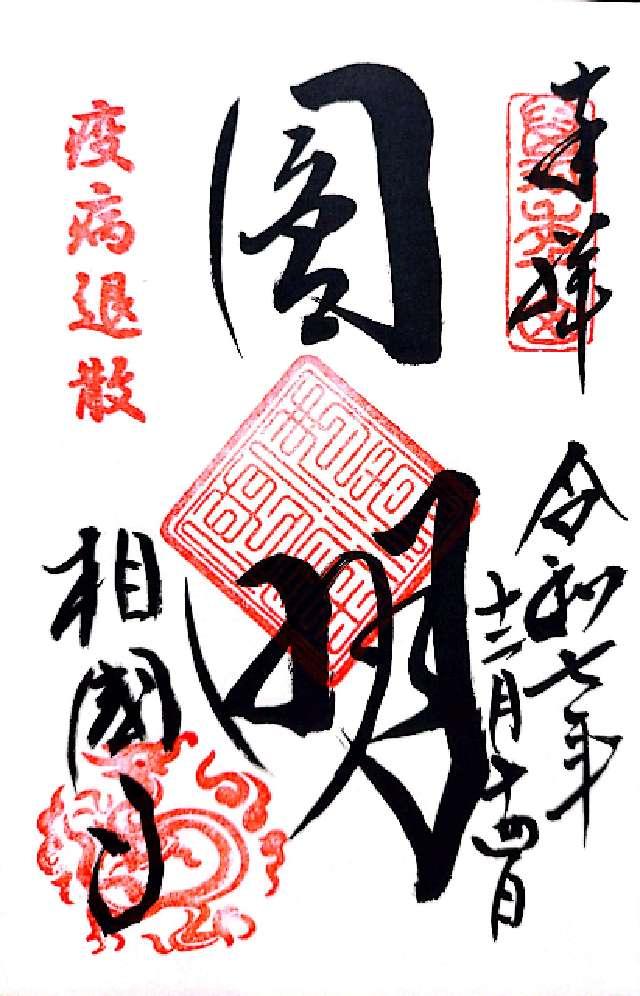 奉拝
令和七年
十二月十四日
圓明
疫病退散
相國寺